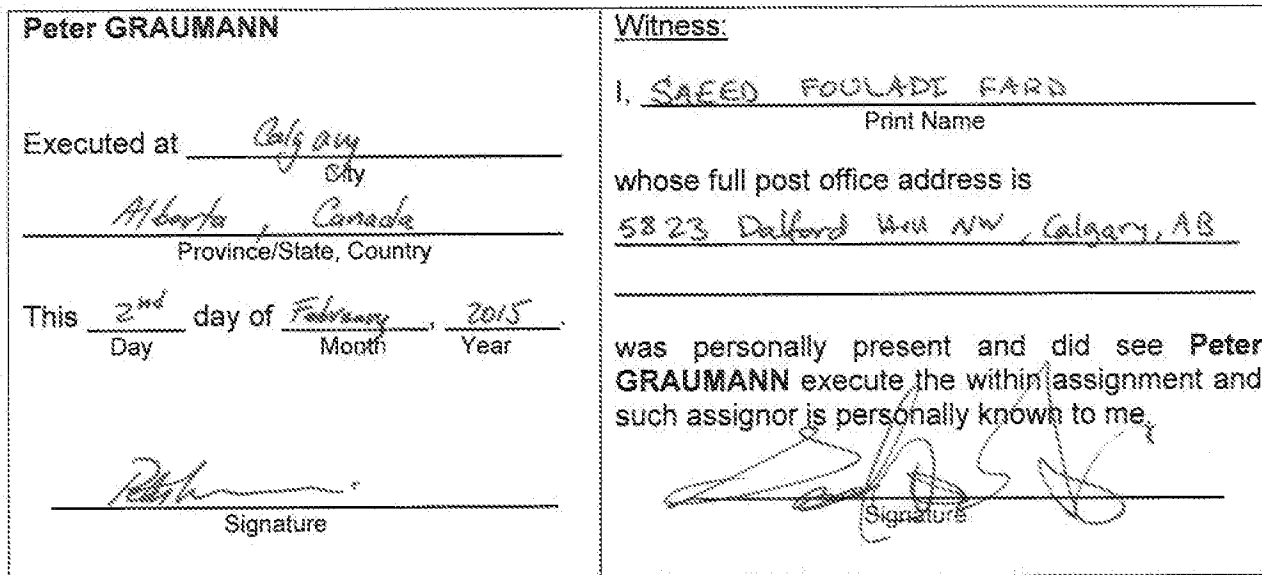 Peter GRAUMANN
Executed at Calgary
City
Alberta, Canada
Province/State, Country
This 2nd day of February, 2015.
Day Month Year
Signature
Witness:
I, SAEED FOULADI FARD
Print Name
whose full post office address is
5823 Dalford Hill NW, Calgary, AB
was personally present and did see Peter
GRAUMANN execute the within assignment and
such assignor is personally known to me.
Signature